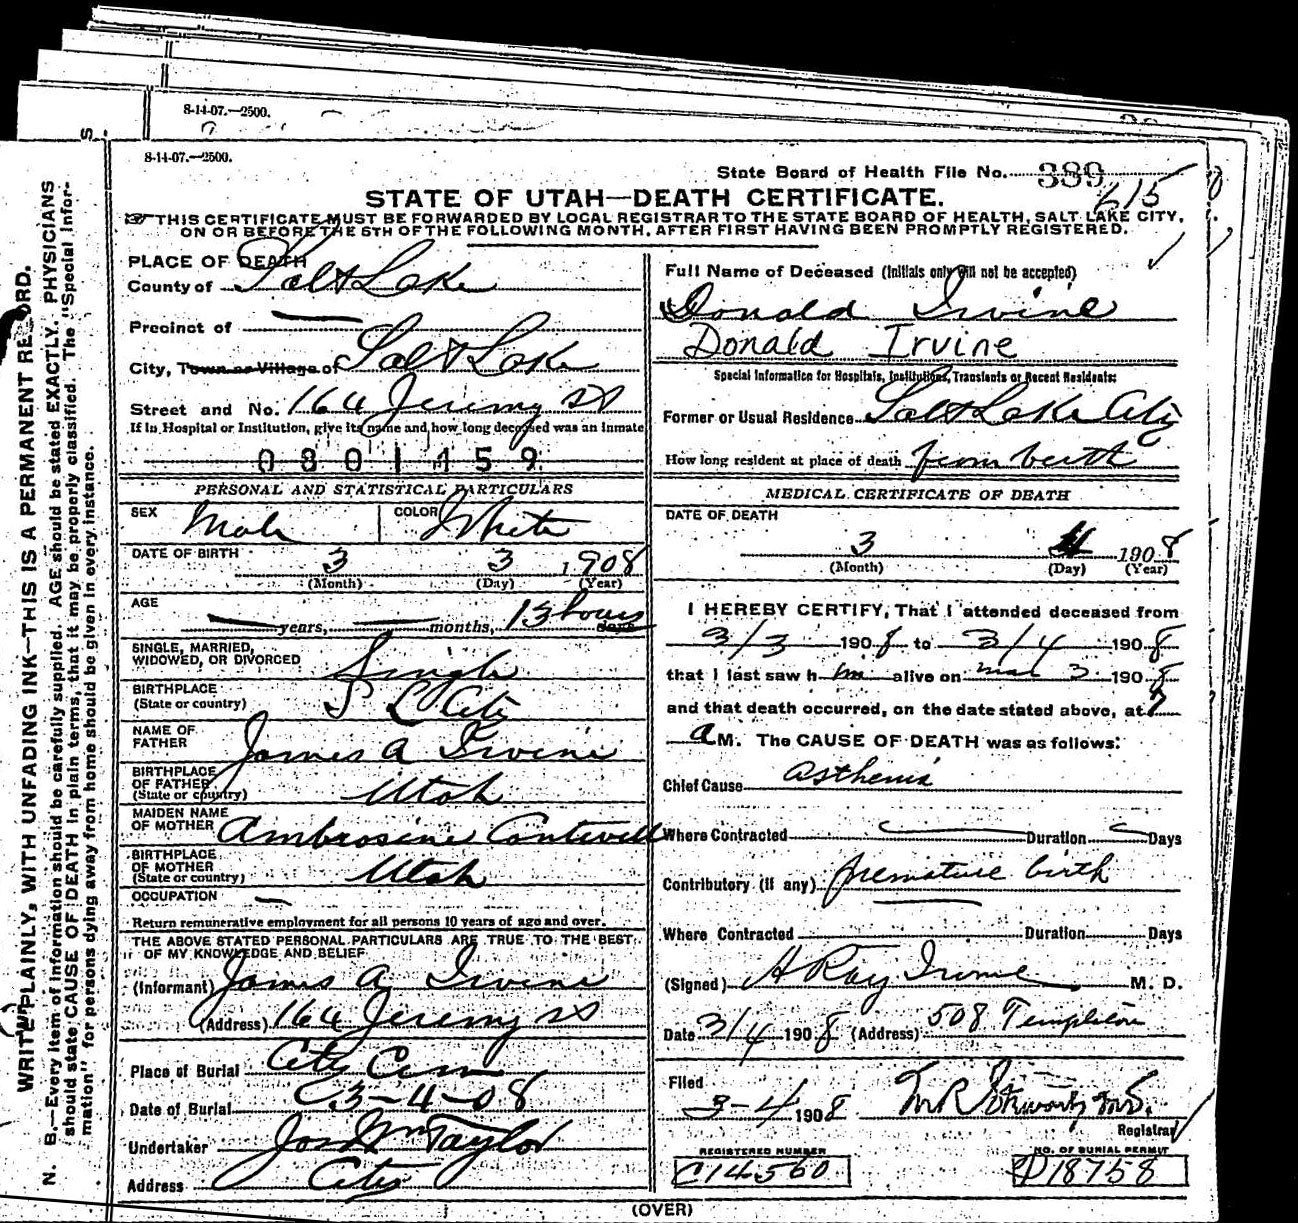 8-14-07.—2500.
8-14-07.—2500.
State Board of Health File No. 389
615
STATE OF UTAH—DEATH CERTIFICATE.
THIS CERTIFICATE MUST BE FORWARDED BY LOCAL REGISTRAR TO THE STATE BOARD OF HEALTH, SALT LAKE CITY,
ON OR BEFORE THE 5TH OF THE FOLLOWING MONTH, AFTER FIRST HAVING BEEN PROMPTLY REGISTERED.
WRITE PLAINLY, WITH UNFADING INK—THIS IS A PERMANENT RECORD.
N. B.—Every item of information should be carefully supplied. AGE should be stated EXACTLY. PHYSICIANS
should state CAUSE OF DEATH in plain terms, that it may be properly classified. The "Special Infor-
mation" for persons dying away from home should be given in every instance.
PLACE OF DEATH
County of Salt Lake
Precinct of —
City, Town or Village of Salt Lake
Street and No. 164 Jeremy St
If in Hospital or Institution, give its name and how long deceased was an inmate
0801459
PERSONAL AND STATISTICAL PARTICULARS
SEX Male COLOR White
DATE OF BIRTH 3 3 1908
(Month) (Day) (Year)
AGE
— years, — months, 13 hours days
SINGLE, MARRIED,
WIDOWED, OR DIVORCED Single
BIRTHPLACE
(State or country) S L City
NAME OF
FATHER James A Irvine
BIRTHPLACE
OF FATHER
(State or country) Utah
MAIDEN NAME
OF MOTHER Ambrosine Cantwell
BIRTHPLACE
OF MOTHER
(State or country) Utah
OCCUPATION —
Return remunerative employment for all persons 10 years of age and over.
THE ABOVE STATED PERSONAL PARTICULARS ARE TRUE TO THE BEST
OF MY KNOWLEDGE AND BELIEF
(Informant) James A Irvine
(Address) 164 Jeremy St
Place of Burial City Cem
Date of Burial 3-4-08
Undertaker Jos Wm Taylor
Address City
Full Name of Deceased (Initials only will not be accepted)
Donald Irvine
Donald Irvine
Special Information for Hospitals, Institutions, Transients or Recent Residents:
Former or Usual Residence Salt Lake City
How long resident at place of death from birth
MEDICAL CERTIFICATE OF DEATH
DATE OF DEATH
3 4 1908
(Month) (Day) (Year)
I HEREBY CERTIFY, That I attended deceased from
3/3 1908 to 3/4 1908
that I last saw him alive on Mar 3 1908
and that death occurred, on the date stated above, at 7
a M. The CAUSE OF DEATH was as follows:
Chief Cause Asthenia
Where Contracted — Duration — Days
Contributory (if any) premature birth
Where Contracted Duration Days
(Signed) A Ray Irvine M. D.
Date 3/4 1908 (Address) 508 Templeton
Filed
3-4 1908
Registrar
REGISTERED NUMBER
C14560
NO. OF BURIAL PERMIT
D18758
(OVER)